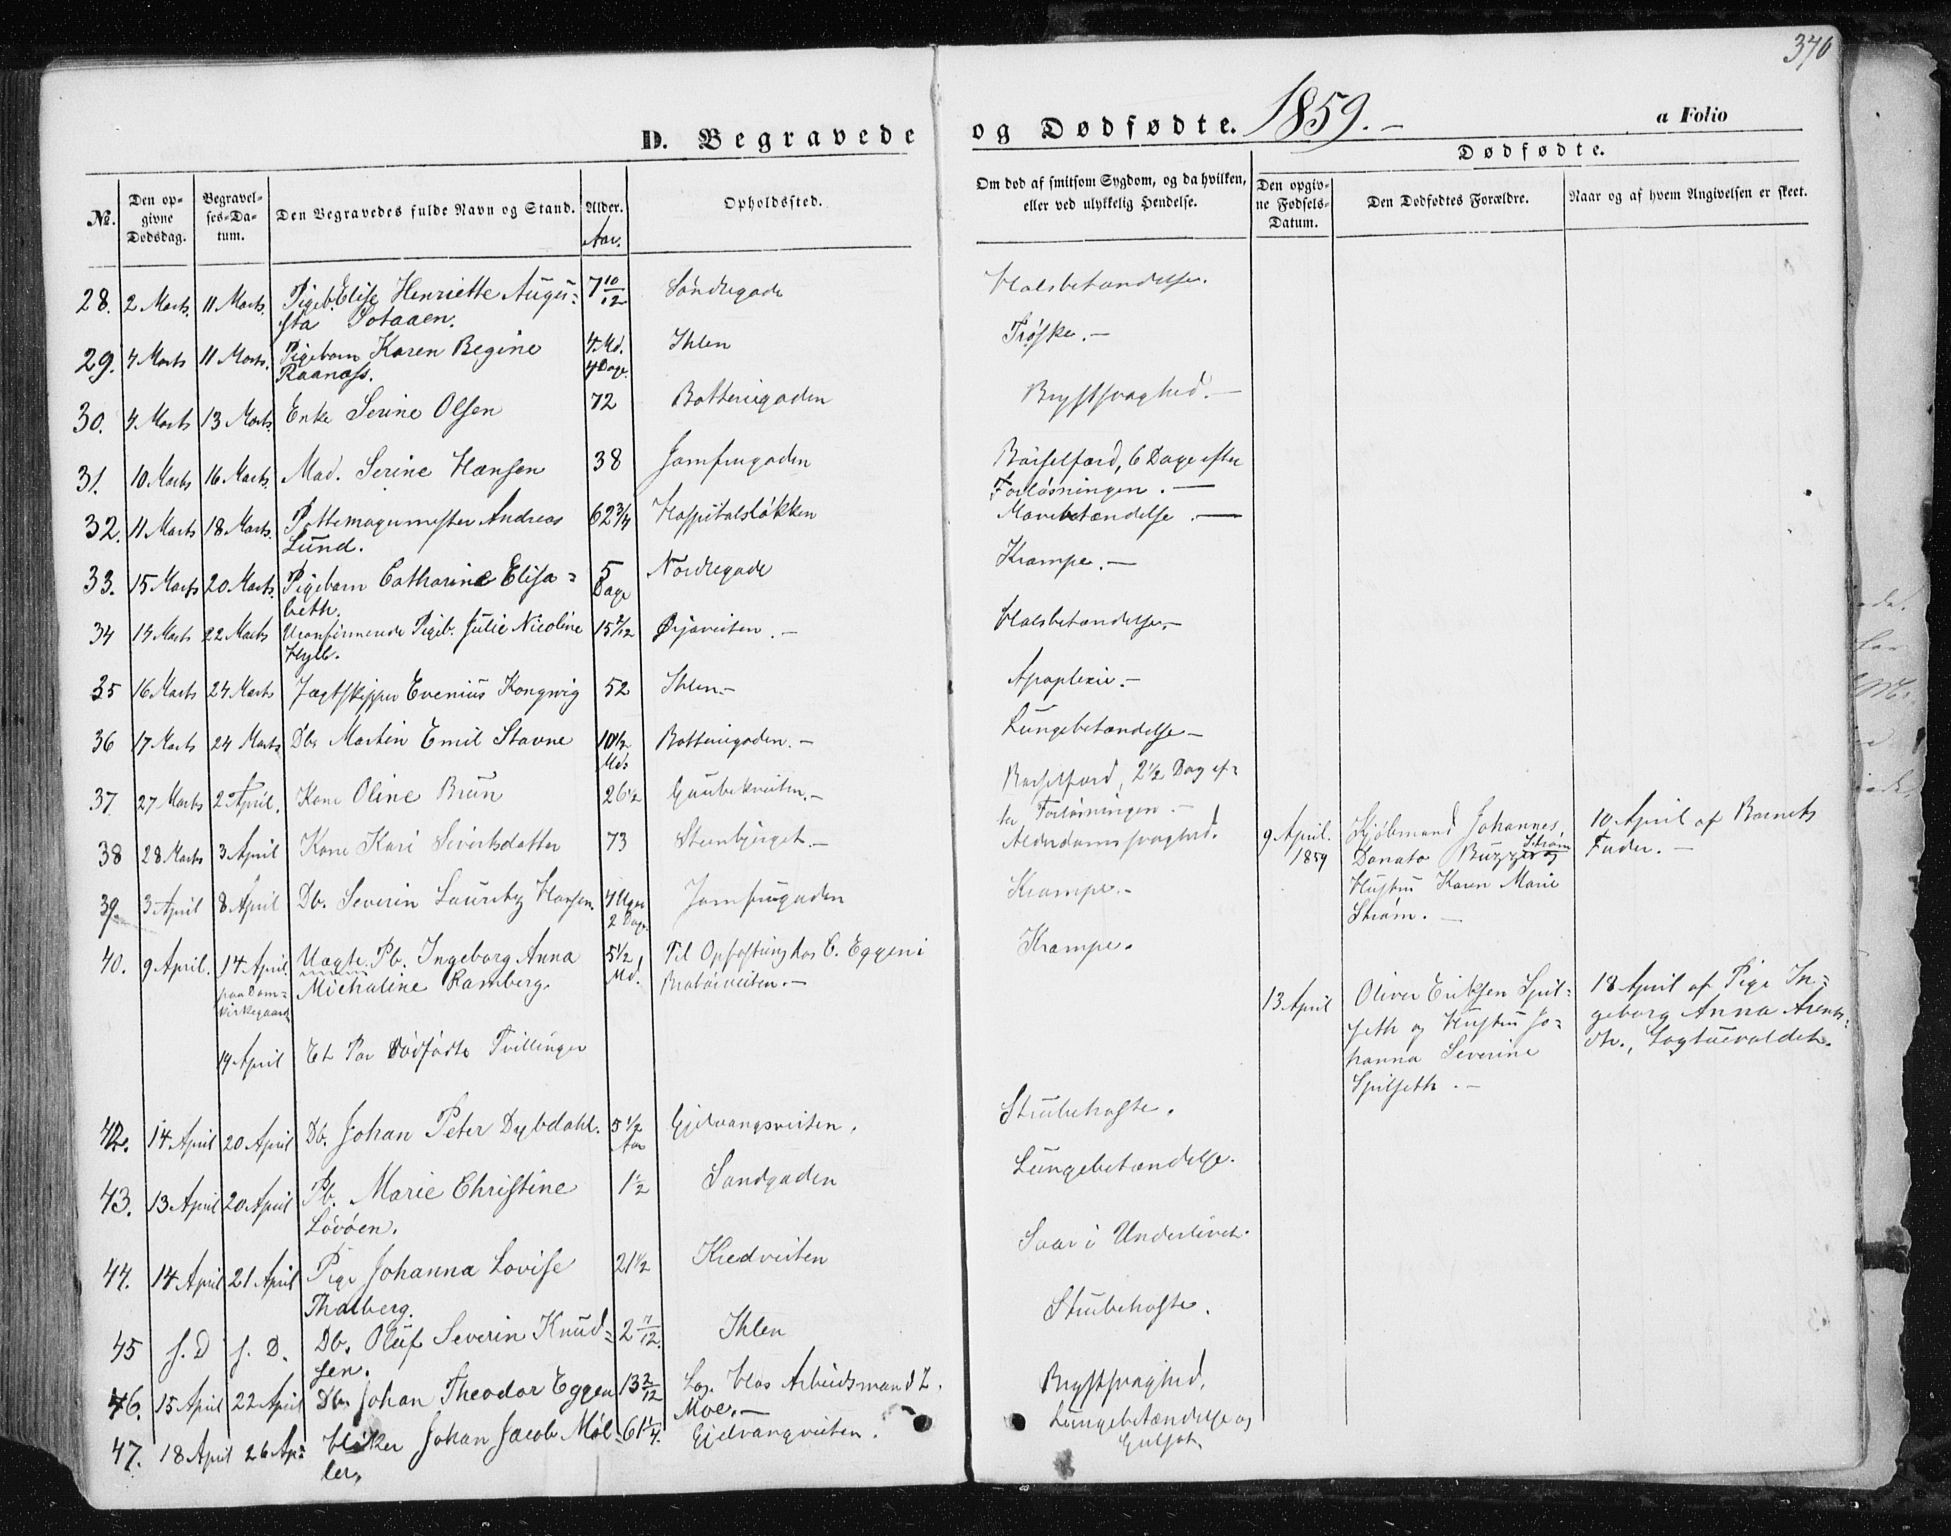 370
D. Begravede og Dødfødte. 1859.-
a Folio
Dødfødte.
No. Den opgivne Dødsdag. Begravelses-Datum. Den Begravedes fulde Navn og Stand. Alder. Opholdssted. Om død af smitsom Sygdom, og da hvilken, eller ved ulykkelig Hendelse. Den opgivne Fødsels-Datum. Den Dødfødtes Forældre. Naar og af hvem Angivelsen er skeet.
Aar.
28. 2 Marts. 11 Marts. Pigeb. Elise Henriette Augu- 7 10/12 Søndregade Halsbetændelse.
sta Potaaen.
29. 4 Marts 11 Marts. Pigebarn Karen Regine 4 Md. Ihlen Trøske.-
Raanæss. 4 Dage.
30. 4 Marts 13 Marts. Enke Serine Olsen 72 Batterigaden Brystsvaghed.-
31. 10 Marts 16 Marts. Mad. Serine Hansen 38 Jomfrugaden Barselfærd, 6 Dage efter
Forløsningen.-
32. 11 Marts 18 Marts. Pottemagermester Andreas 62 3/4 Hospitalsløkken Mavebetændelse.-
Lund.
33. 15 Marts 20 Marts. Pigebarn Catharine Elisa= 5 Nordregade Krampe.-
beth. Dage
34 14 Marts 22 Marts Uconfirmerede Pigeb. Julie Nicoline 15 2/12 Ørjaveiten.- Halsbetændelse.-
35 16 Marts 24 Marts Jægtskipper Evenius Kongsvig 52 Ihlen.- Apoplexie.-
36 17 Marts 24 Marts Db. Martin Emil Stavne 10 1/2 Batterigaden.- Lungebetændelse-
Md.
37 27 Marts 2 April. Kone Oline Brun 26 1/2 Gaubekveiten.- Barselfærd, 2 1/2 Dag ef=
ter Forløsningen.-
38 28 Marts 3 April Kone Kari Sivertsdatter 73 Steenbjerget.- Alderdomssvaghed. 9 April. Kjøbmand Johannes 10 April af Barnets
1859 Donato Buzzi Strøm og Fader.-
39. 3 April 8 April Db. Severin Lauritz Hansen. 4 Uger Jomfrugaden Krampe.- Hustru Karen Marie
2 Dage Strøm.-
40. 9 April. 14 April Uægte Pb. Ingeborg Anna 5 1/2 Til Opfostring hos C. Eggen i Krampe.
paa Dom= Michaline Ramberg. Md. Bratørveiten.-
kirkegaard
13 April Oliver Eriksen Spil= 18 April af Pige In=
seth og Hustru Jo= geborg Anna Arents=
19 April Et Par Dødfødte Tvillinger hanna Severine dtr., Lagtuevoldet.
Spilseth.-
42. 14 April 20 April Db. Johan Peter Dybdahl. 5 1/2 Ejdvangsveiten. Strubehoste.
Aar
43. 13 April 20 April Pb. Marie Christine 1 1/2 Sandgaden Lungebetændelse.
Løvøen.
44. 14 April 21 April Pige Johanna Lovise 21 1/2 Kredveiten Saar i Underlivet.
Thalberg.
45 s. D s. D. Db. Oluf Severin Knud= 2 11/12 Ihlen Strubehoste.
sen.
46. 15 April 22 April Db. Johan Theodor Eggen 13 2/12 Log. hos Arbeidsmand L. Brystsvaghed.
Moe.-
47. 18 April 26 Apr. Høker Johan Jacob Møl- 61 1/4. Ejdvangveiten. Lungebetændelse og
ler. Gulsot.